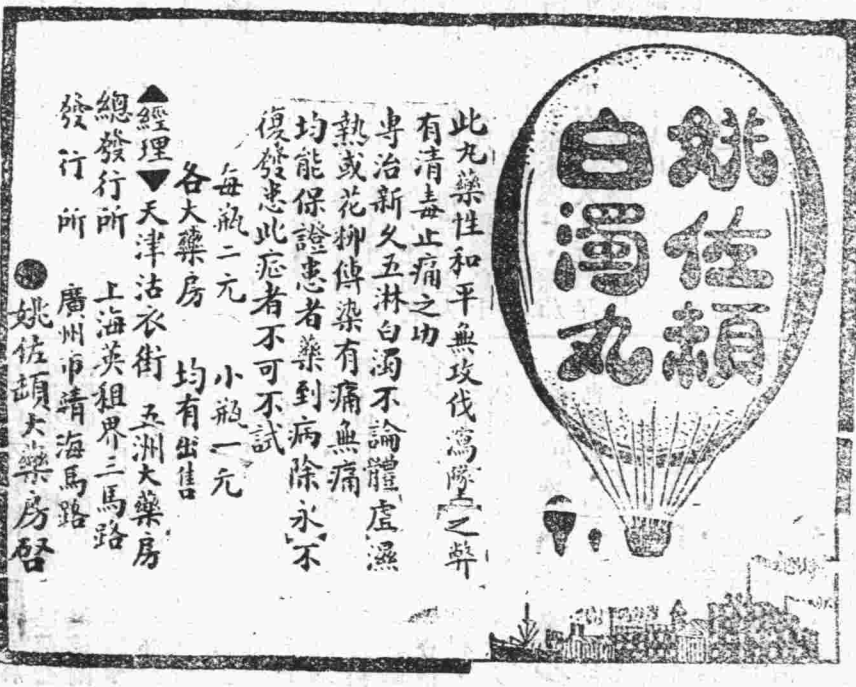 姚佐頓
白濁丸
此丸藥性和平無攻伐瀉墜之弊
有清毒止痛之功
専治新久五淋白濁不論體虛濕
熱或花柳傳染有痛無痛
均能保證患者藥到病除永不
復發患此症者不可不試
每瓶二元 小瓶一元
各大藥房 均有出售
▲經理▼天津沽衣街 五洲大藥房
總發行所 上海英租界三馬路
發行所 廣州市靖海馬路
姚佐頓大藥房啓